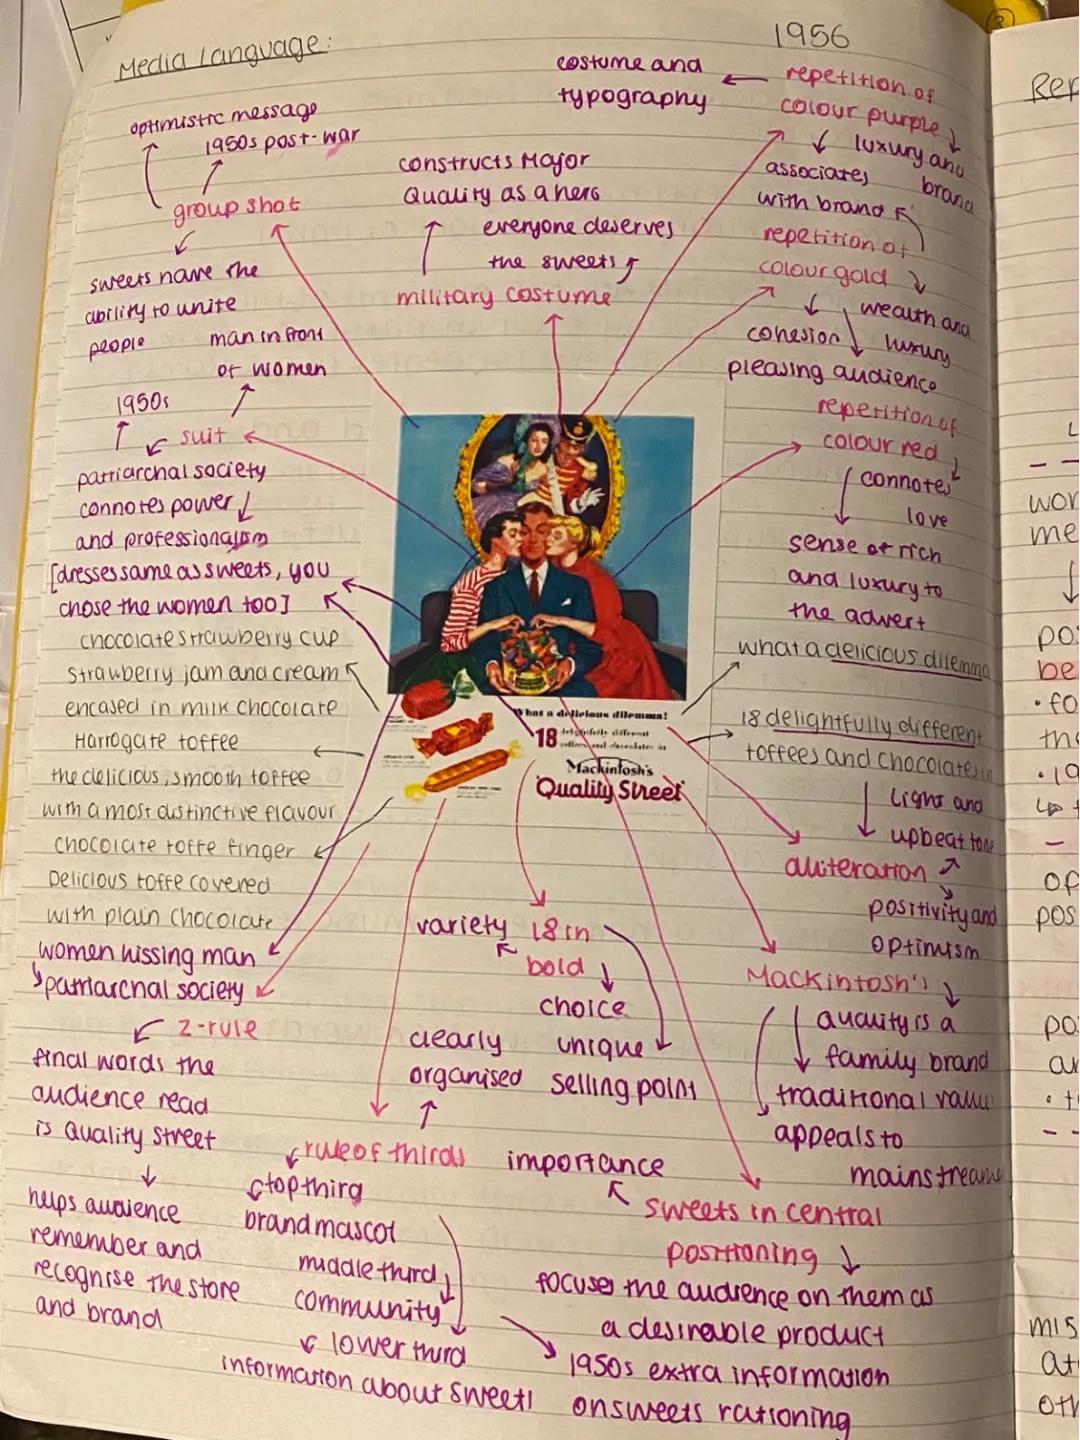 Media Language:
1956
optimistic message
1950s post-war
group shot
sweets have the
ability to unite
people
man in front
of women
1950s
suit
patriarchal society
connotes power
and professionalism
[dresses same as sweets, you
chose the women too]
chocolate strawberry cup
strawberry jam and cream
encased in milk chocolate
Harrogate toffee
the delicious, smooth toffee
with a most distinctive flavour
chocolate toffe finger
Delicious toffe covered
with plain chocolate
women kissing man
patriarchal society
z-rule
final words the
audience read
is Quality Street
helps audience
remember and
recognise the store
and brand
constructs Major
Quality as a hero
everyone deserves
the sweets
military costume
costume and
typography
repetition of
colour purple
luxury and
brand
associates
with brand
repetition of
colour gold
wealth and
luxury
cohesion
pleasing audience
repetition of
colour red
connotes
love
sense of rich
and luxury to
the advert
what a delicious dilemma
18 delightfully different
toffees and chocolates in
Light and
upbeat tone
alliteration
positivity and
optimism
Mackintosh's
quality is a
family brand
traditional value
appeals to
mainstreame
What a delicious dilemma!
18 delightfully different
toffees and chocolates in
Mackintosh's
'Quality Street'
variety
18 in
bold
choice
unique
selling point
clearly
organised
rule of thirds
top third
brand mascot
middle third
community
lower third
information about sweets
1950s extra information
on sweets rationing
importance
sweets in central
positioning
focuses the audience on them as
a desirable product
Rep
wor
me
pos
be
• fo
the
• 19
op
pos
po
ar
• t
mis
at
oth
3